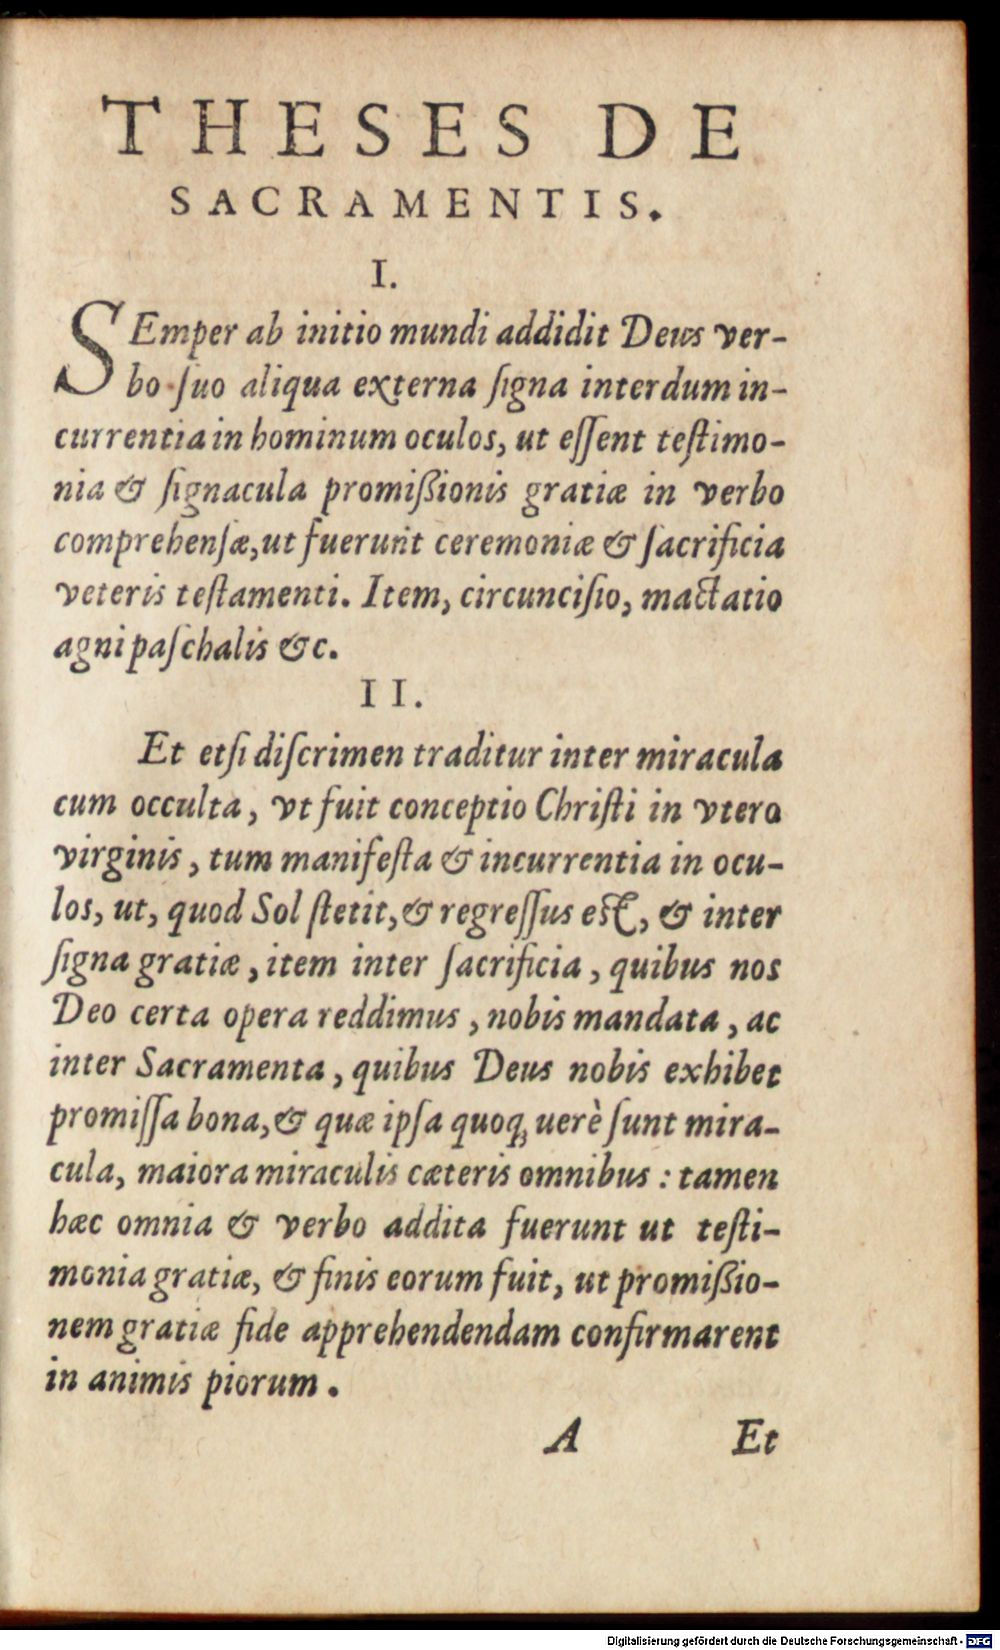 THESES DE
SACRAMENTIS.
I.
SEmper ab initio mundi addidit Deus ver-
bo ſuo aliqua externa ſigna interdum in-
currentia in hominum oculos, ut eſſent teſtimo-
nia & ſignacula promißionis gratiæ in verbo
comprehenſæ, ut fuerunt ceremoniæ & ſacrificia
veteris teſtamenti. Item, circunciſio, mactatio
agni paſchalis &c.
II.
Et etſi diſcrimen traditur inter miracula
cum occulta, vt fuit conceptio Chriſti in vtero
virginis, tum manifeſta & incurrentia in ocu-
los, ut, quod Sol ſtetit, & regreſſus eſt, & inter
ſigna gratiæ, item inter ſacrificia, quibus nos
Deo certa opera reddimus, nobis mandata, ac
inter Sacramenta, quibus Deus nobis exhibet
promiſſa bona, & quæ ipſa quoq; uerè ſunt mira-
cula, maiora miraculis cæteris omnibus: tamen
hæc omnia & verbo addita fuerunt ut teſti-
monia gratiæ, & finis eorum fuit, ut promißio-
nem gratiæ fide apprehendendam confirmarent
in animis piorum.
A Et
Digitalisierung gefördert durch die Deutsche Forschungsgemeinschaft - DFG